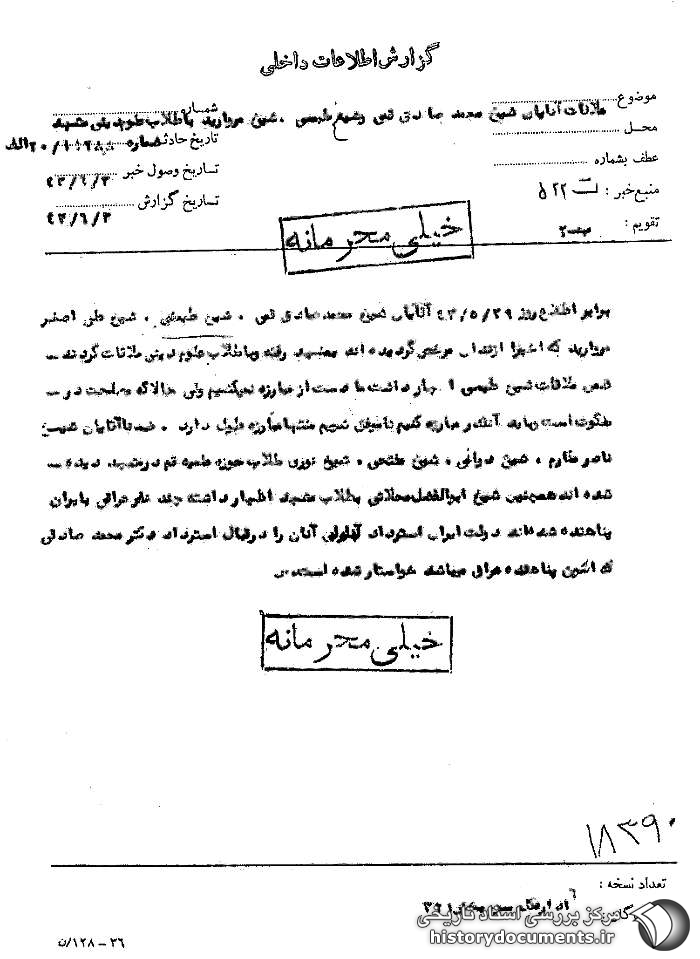 گزارش اطلاعات داخلی
موضوع ملاقات آقایان شیخ محمد صادقی قمی و شیخ طبسی ، شیخ مروارید باطلاب علوم دینی مشهد
شماره
محل
تاریخ حادثه
شماره
عطف بشماره
تاریخ وصول خبر ۴۳/۶/۳
منبع خبر : ۵۲۲
تاریخ گزارش ۴۳/۶/۳
تقویم :
خیلی محرمانه
برابر اطلاع روز ۴۳/۵/۲۹ آقایان شیخ محمد صادقی قمی ، شیخ طبسی ، شیخ علی اصغر
مروارید که اخیرا از زندان مرخص گردیده اند بمشهد رفته و باطلاب علوم دینی ملاقات کردند
ضمن ملاقات شیخ طبسی اظهار داشت ما دست از مبارزه نمیکشیم ولی حالا که مصلحت در
سکوت است باید آنقدر مبارزه کنیم تا موفق شویم منتها مبارزه طول دارد . ضمنا آقایان شیخ
ناصر مکارم ، شیخ دوانی ، شیخ ، شیخ نوری طلاب حوزه علمیه قم در مشهد دیده
شده اند همچنین شیخ ابوالفضل محلاتی بطلاب مشهد اظهار داشته چند نفر عراقی بایران
پناهنده شده‌اند دولت ایران استرداد آنان را در قبال استرداد دکتر محمد صادقی
که اکنون پناهنده عراق میباشد خواستار شده است
خیلی محرمانه
۱۸۳۹۰
تعداد نسخه :
مرکز بررسی اسناد تاریخی
historydocuments.ir
۳۶ – ۱۲۸/ن